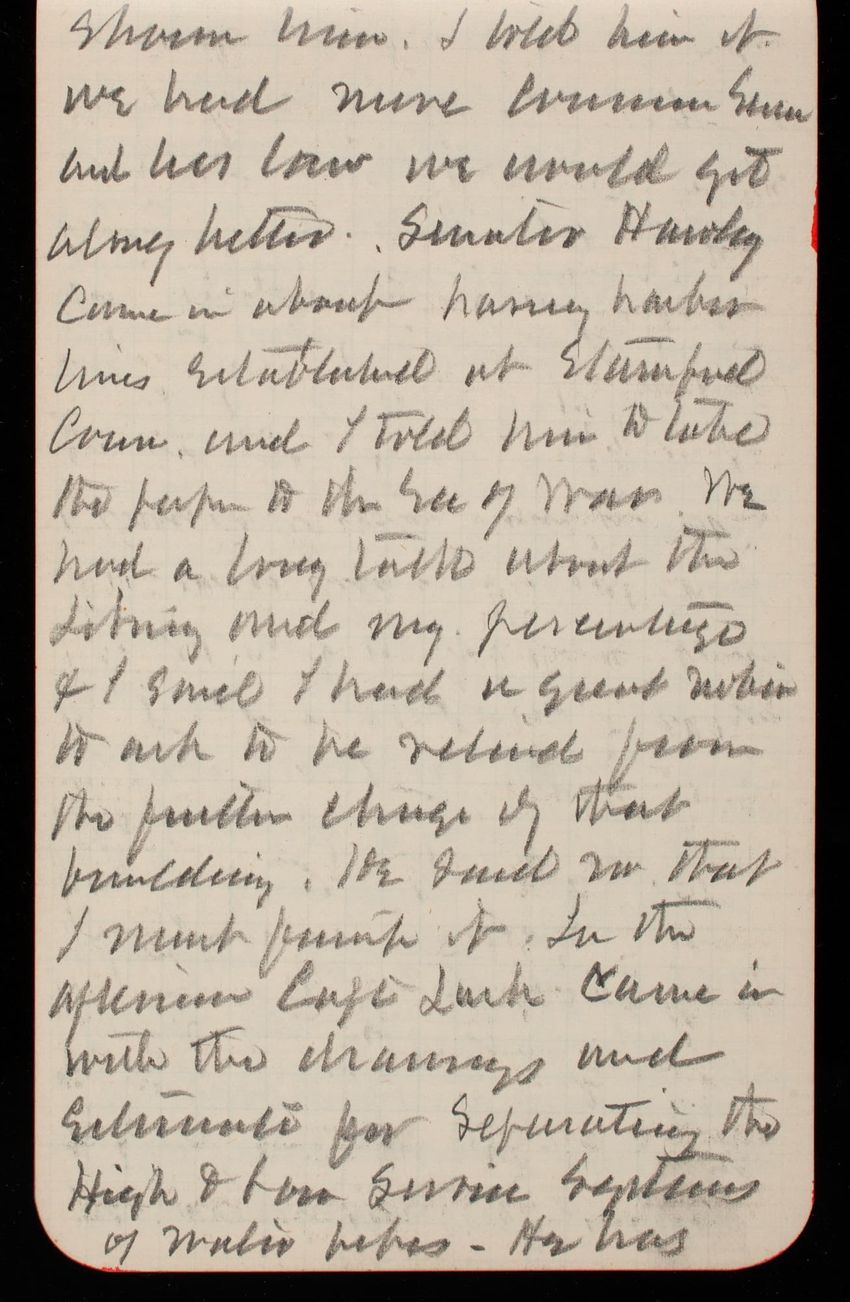 shown him. I told him if
we had more common sense
and less law we would get
along better. Senator Hawley
came in about having harbor
lines established at Stamford
Conn. and I told him to take
the paper to the Sec of War. We
had a long talk about the
Library and my percentage
& I said I had a great notion
to ask to be relieved from
the further charge of that
building. He said no that
I must finish it. In the
afternoon Capt Lusk came in
with the drawings and
Estimate for separating the
High & Low Service Systems
of water pipes - He has